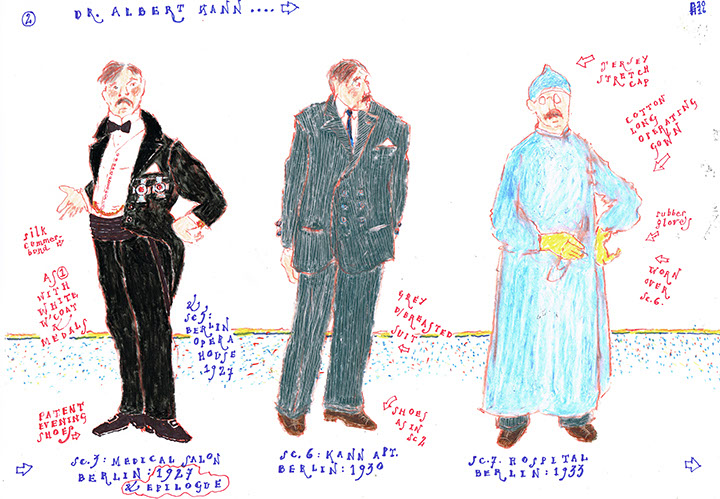 2
DR. ALBERT KANN ....
JERSEY
STRETCH
CAP
COTTON
LONG
OPERATING
GOWN
silk
cummer-
bund
AS 1
WITH
WHITE
W'COAT
&
MEDALS
&
SC. 5:
BERLIN
OPERA
HOUSE
1927
GREY
D/BREASTED
SUIT
rubber
gloves
WORN
OVER
SC. 6.
PATENT
EVENING
SHOES
SHOES
AS IN
SC 2
SC. 3: MEDICAL SALON
BERLIN: 1927
& EPILOGUE
SC. 6: KANN APT.
BERLIN: 1930
SC. 7. HOSPITAL
BERLIN: 1933